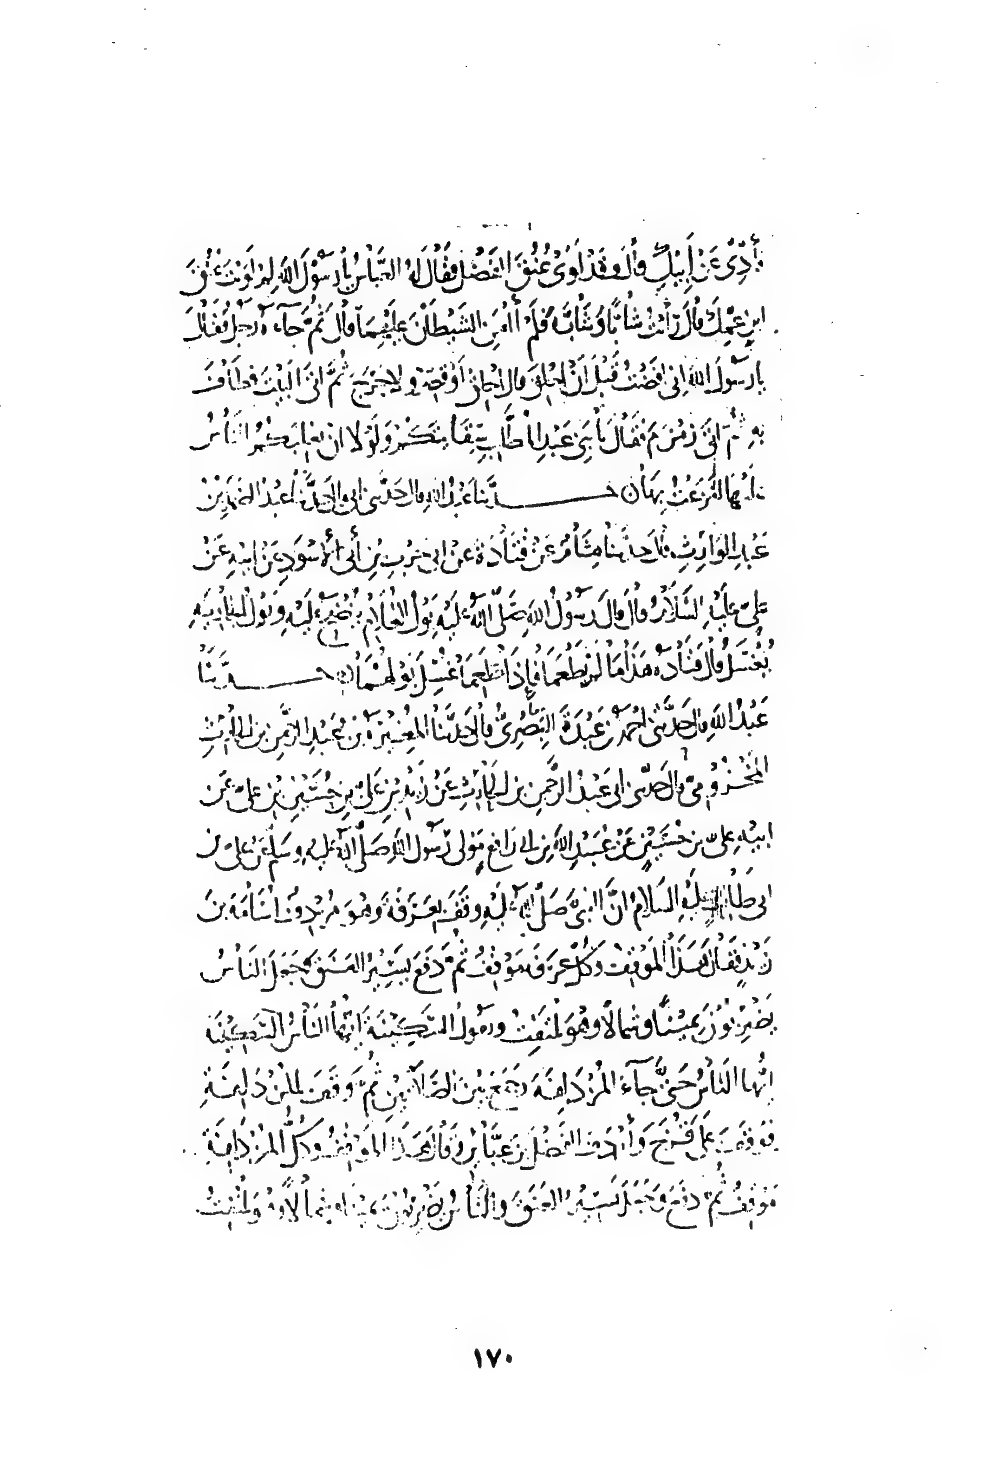 فأدي عن أبيك قال وقد لوى عنق الفضل فقال له العباس يا رسول الله لم لويت عنق
ابن عمك قال رأيت شابا وشابة فلم أأمن الشيطان عليهما قال ثم جاءه رجل فقال
يا رسول الله اني افضت قبل ان احلق قال احلق او قصر ولا حرج ثم اتى البيت فطاف
به ثم اتى زمزم فقال يا بني عبد المطلب سقايتكم ولولا ان يغلبكم الناس
عليها لنزعت بها حدثنا عبد الله قال حدثني ابي قال حدثنا عبد الصمد بن
عبد الوارث قال حدثنا هشام عن قتادة عن ابي حرب بن أبي الأسود عن ابيه عن
علي عليه السلام قال قال رسول الله صلى الله عليه بول الغلام ينضح عليه وبول الجارية
يغسل قال قتادة هذا ما لم يطعما فإذا طعما غسل بولهما حدثنا
عبد الله قال حدثني احمد بن عبدة البصري قال حدثنا المغيرة بن عبد الرحمن بن الحرث
المخزومي قال حدثني ابي عبد الرحمن بن الحارث عن زيد بن علي بن حسين بن علي عن
ابيه علي بن حسين عن عبيد الله بن ابي رافع مولى رسول الله صلى الله عليه وسلم عن علي بن
ابي طالب عليه السلام ان النبي صلى الله عليه وقف بعرفة وهو مردف اسامة بن
زيد فقال هذا الموقف وكل عرفة موقف ثم دفع يسير العنق وجعل الناس
يضربون يمينا وشمالا وهو يلتفت ويقول السكينة ايها الناس السكينة
ايها الناس حتى جاء المزدلفة وجمع بين الصلاتين ثم وقف بالمزدلفة
فوقف على قزح وأردف الفضل بن عباس وقال هذا الموقف وكل المزدلفة
موقف ثم دفع وجعل يسير العنق والناس يضربون يمينا وشمالا وهو يلتفت
١٧٠